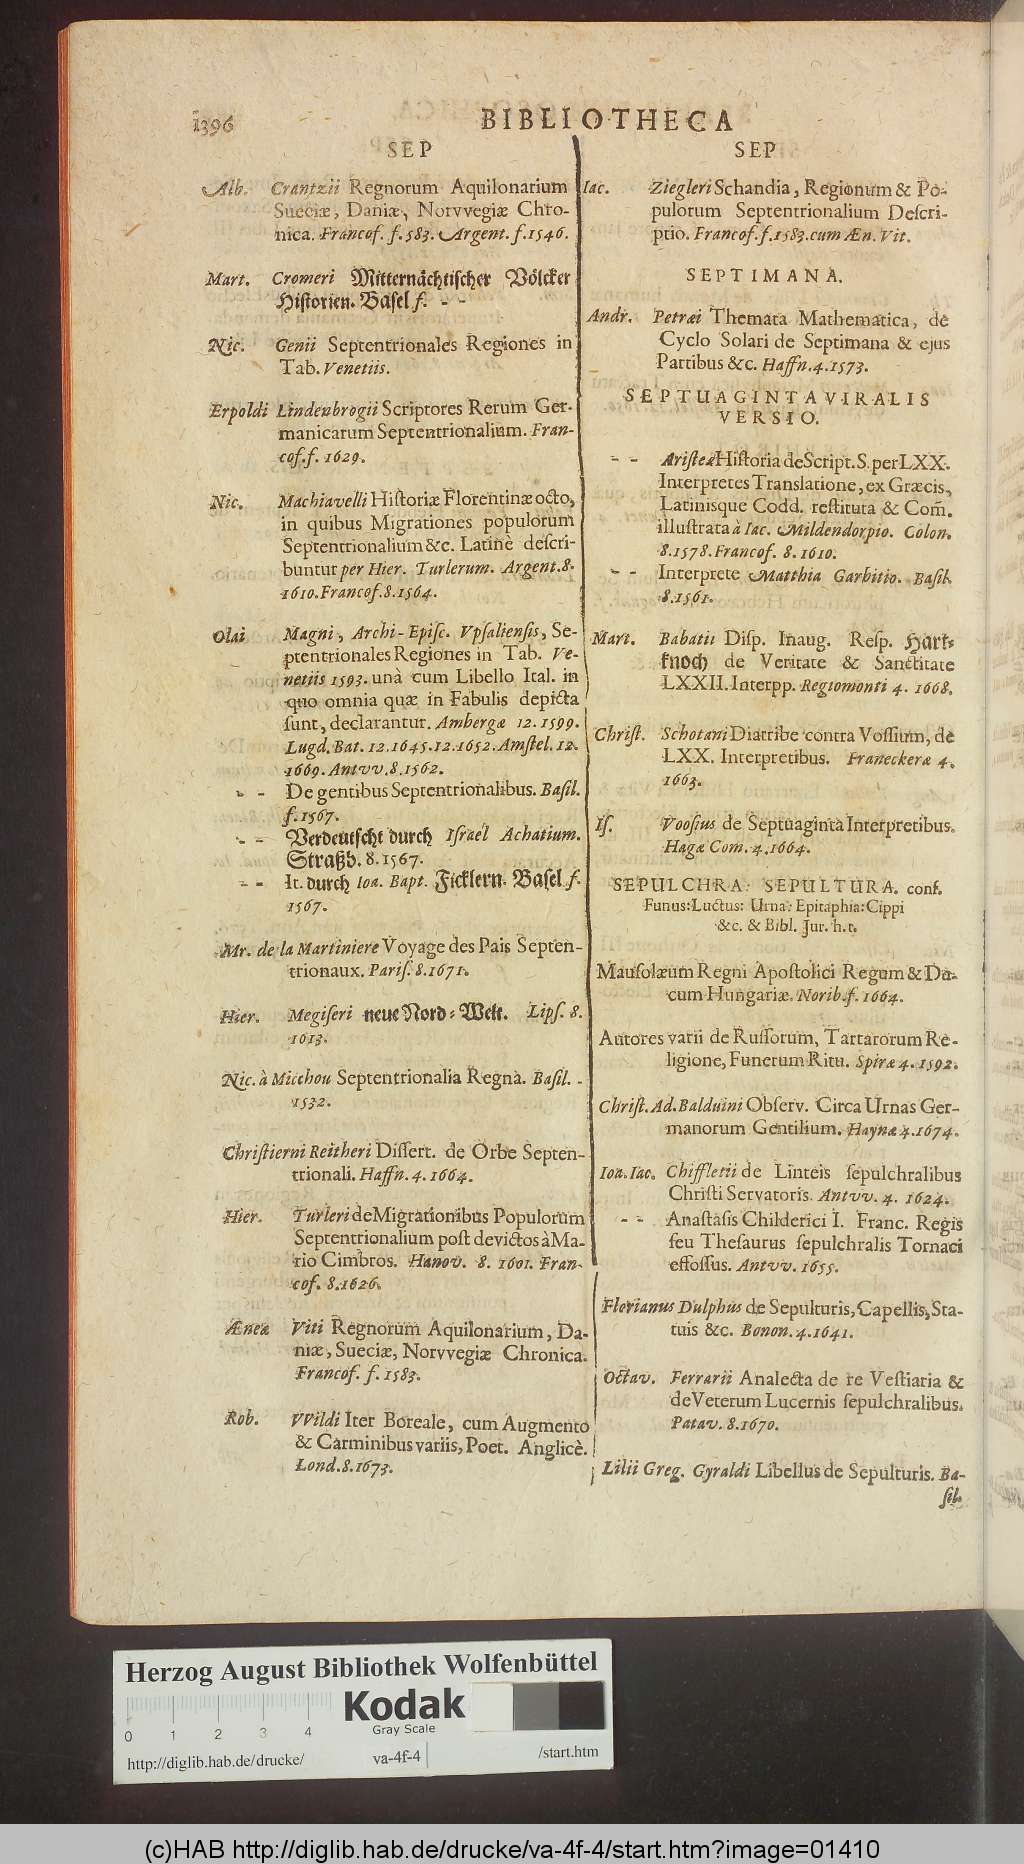 1396
BIBLIOTHECA
SEP
Alb. Crantzii Regnorum Aquilonarium
Sueciæ, Daniæ, Norvvegiæ Chro-
nica. Francof. f. 583. Argent. f. 1546.
Mart. Cromeri Mitternächtischer Völcker
Historien. Basel f. - -
Nic. Genii Septentrionales Regiones in
Tab. Venetiis.
Erpoldi Lindenbrogii Scriptores Rerum Ger-
manicarum Septentrionalium. Fran-
cof. f. 1629.
Nic. Machiavelli Historiæ Florentinæ octo,
in quibus Migrationes populorum
Septentrionalium &c. Latinè descri-
buntur per Hier. Turlerum. Argent. 8.
1610. Francof. 8. 1564.
Olai Magni, Archi-Episc. Vpsaliensis, Se-
ptentrionales Regiones in Tab. Ve-
netiis 1593. unà cum Libello Ital. in
quo omnia quæ in Fabulis depicta
sunt, declarantur. Ambergæ 12. 1599.
Lugd. Bat. 12. 1645. 12. 1652. Amstel. 12.
1669. Antvv. 8. 1562.
- - De gentibus Septentrionalibus. Basil.
f. 1567.
- - Verdeutscht durch Israel Achatium.
Straßb. 8. 1567.
- - It. durch Ioa. Bapt. Ficklern. Basel f.
1567.
Mr. de la Martiniere Voyage des Pais Septen-
trionaux. Paris. 8. 1671.
Hier. Megiseri neue Nord-Welt. Lips. 8.
1613.
Nic. à Micchou Septentrionalia Regna. Basil. -
1532.
Christierni Reitheri Dissert. de Orbe Septen-
trionali. Haffn. 4. 1664.
Hier. Turleri de Migrationibus Populorum
Septentrionalium post devictos à Ma-
rio Cimbros. Hanov. 8. 1601. Fran-
cof. 8. 1626.
Æneæ Viti Regnorum Aquilonarium, Da-
niæ, Sueciæ, Norvvegiæ Chronica.
Francof. f. 1583.
Rob. VVildi Iter Boreale, cum Augmento
& Carminibus variis, Poet. Anglicè.
Lond. 8. 1673.
SEP
Iac. Ziegleri Schandia, Regionum & Po-
pulorum Septentrionalium Descri-
ptio. Francof. f. 1583. cum Æn. Vit.
SEPTIMANA.
Andr. Petræi Themata Mathematica, de
Cyclo Solari de Septimana & ejus
Partibus &c. Haffn. 4. 1573.
SEPTUAGINTAVIRALIS
VERSIO.
- - Aristeæ Historia de Script. S. per LXX.
Interpretes Translatione, ex Græcis,
Latinisque Codd. restituta & Com.
illustrata à Iac. Mildendorpio. Colon.
8. 1578. Francof. 8. 1610.
- - Interprete Matthia Garbitio. Basil.
8. 1561.
Mart. Babatii Disp. Inaug. Resp. Hart-
knoch de Veritate & Sanctitate
LXXII. Interpp. Regiomonti 4. 1668.
Christ. Schotani Diatribe contra Vossium, de
LXX. Interpretibus. Franeckeræ 4.
1663.
Is. Voosius de Septuaginta Interpretibus.
Hagæ Com. 4. 1664.
SEPULCHRA: SEPULTURA. conf.
Funus: Luctus: Urna: Epitaphia: Cippi
&c. & Bibl. Jur. h. t.
Mausolæum Regni Apostolici Regum & Du-
cum Hungariæ. Norib. f. 1664.
Autores varii de Russorum, Tartarorum Re-
ligione, Funerum Ritu. Spiræ 4. 1592.
Christ. Ad. Balduini Observ. Circa Urnas Ger-
manorum Gentilium. Haynæ 4. 1674.
Ioa. Iac. Chiffletii de Linteis sepulchralibus
Christi Servatoris. Antvv. 4. 1624.
- - Anastasis Childerici I. Franc. Regis
seu Thesaurus sepulchralis Tornaci
effossus. Antvv. 1655.
Florianus Dulphus de Sepulturis, Capellis, Sta-
tuis &c. Bonon. 4. 1641.
Octav. Ferrarii Analecta de re Vestiaria &
de Veterum Lucernis sepulchralibus.
Patav. 8. 1670.
Lilii Greg. Gyraldi Libellus de Sepulturis. Ba-
sil.
Herzog August Bibliothek Wolfenbüttel
Kodak
Gray Scale
0 1 2 3 4
http://diglib.hab.de/drucke/ va-4f-4 /start.htm
(c)HAB http://diglib.hab.de/drucke/va-4f-4/start.htm?image=01410